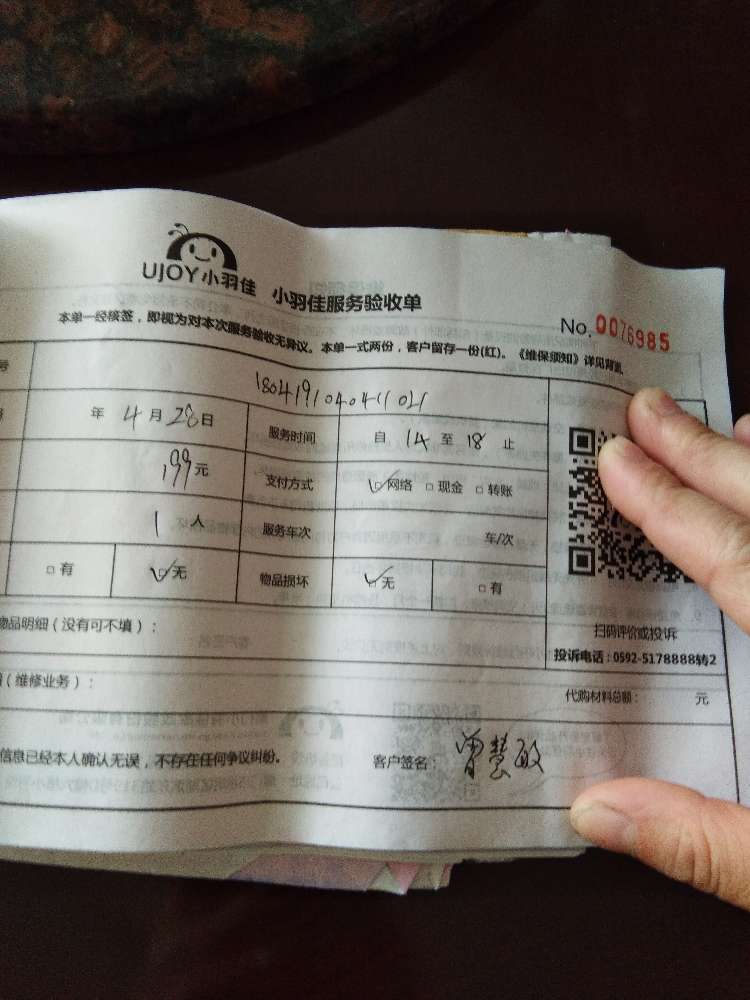 UJOY小羽佳 小羽佳服务验收单
No. 0076985
本单一经核签，即视为对本次服务验收无异议。本单一式两份，客户留存一份(红)。《维保须知》详见背面
号
180419104041102
年 4月28日 服务时间 自 14 至 18 止
199元 支付方式 ☑网络 □现金 □转账
1 人 服务车次 车/次
□有 ☑无 物品损坏 ☑无 □有
扫码评价或投诉
投诉电话：0592-5178888转2
物品明细（没有可不填）：
（维修业务）： 代购材料总额： 元
信息已经本人确认无误，不存在任何争议纠纷。 客户签名：曾慧敏